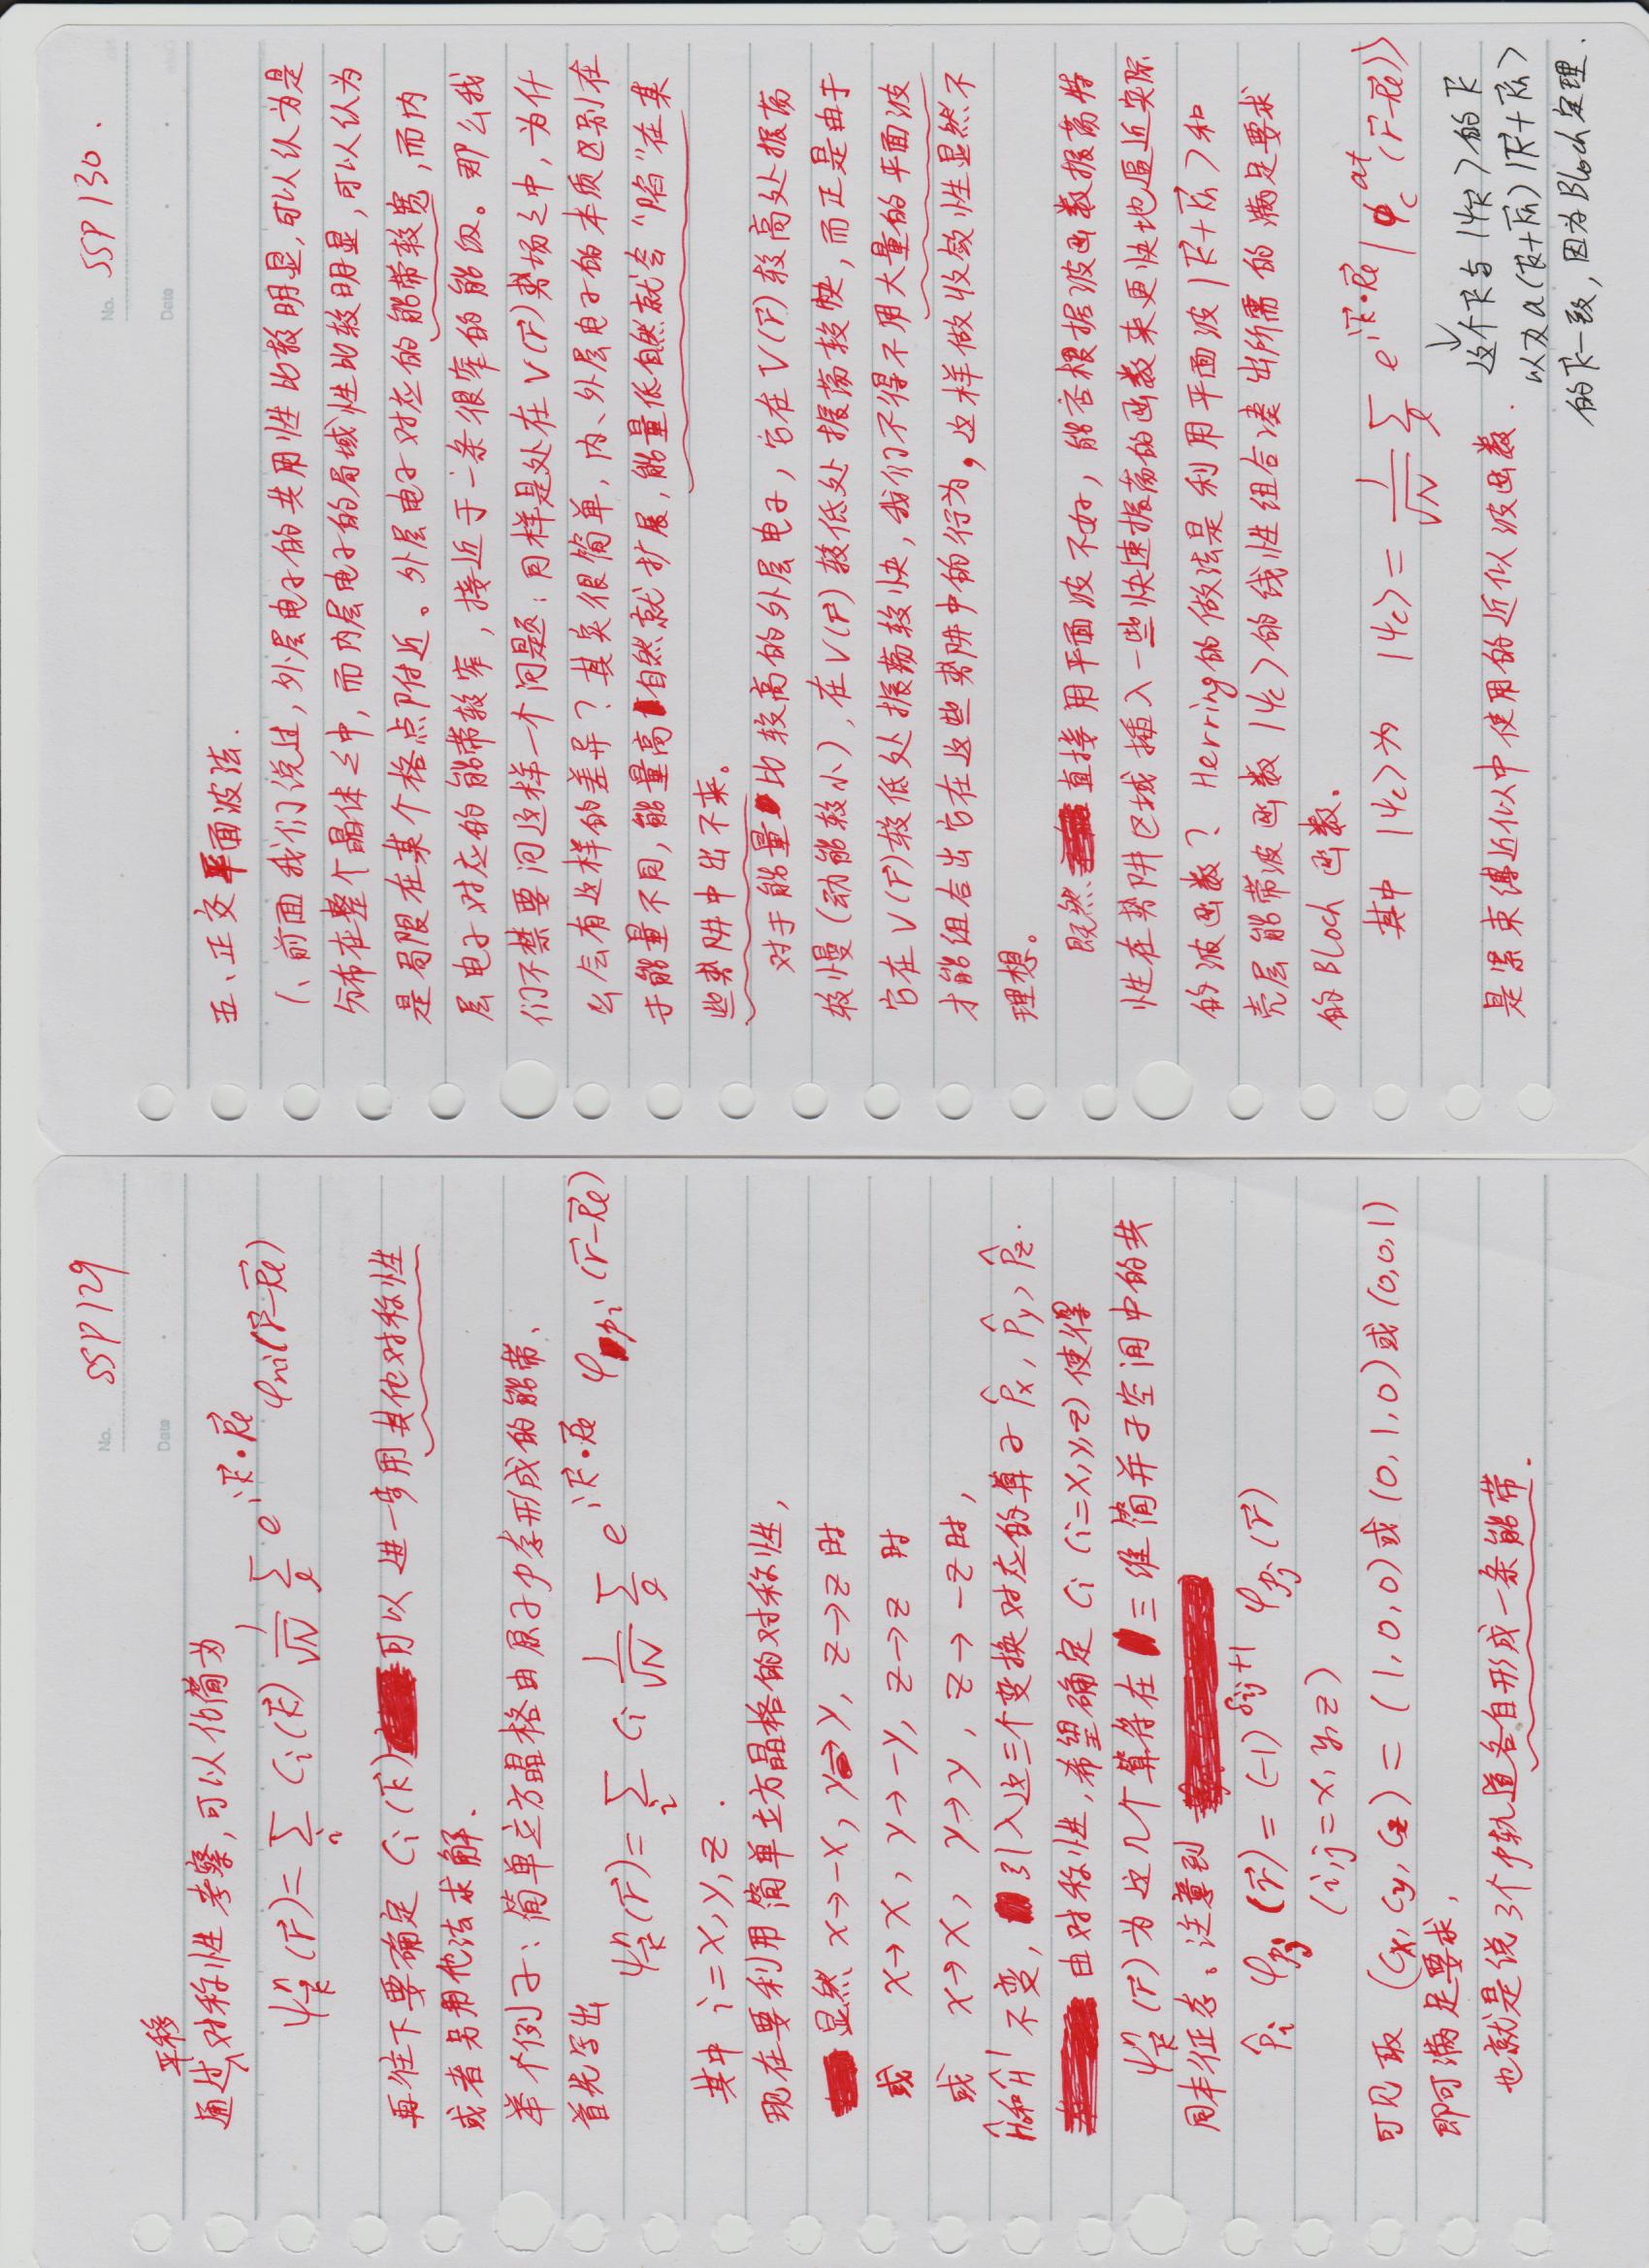 SSP129
平移
通过对称性考察,可以化简为
ψⁿ_k⃗(r⃗)= Σ_i C_i(k⃗) 1/√N Σ_l e^{ik⃗·R⃗l} φ_ni(r⃗-R⃗l)
再往下要确定 C_i(k⃗) 可以进一步用其他对称性
或者另用他法求解.
举个例子:简单立方晶格由原子p态形成的能带、
首先写出
ψⁿ_k⃗(r⃗)= Σ_i C_i 1/√N Σ_l e^{ik⃗·R⃗l} φ_pi(r⃗-R⃗l)
其中 i=x,y,z .
现在要利用简单立方晶格的对称性,
显然 x→-x, y→y, z→z 时
或 x→x, y→-y, z→z 时
或 x→x, y→y, z→-z时,
Ĥ₀和Ĥ' 不变, 引入这三个变换对应的算子 P̂x, P̂y, P̂z.
由对称性,希望确定 Ci (i=x,y,z) 使得
ψⁿ_k⃗(r⃗)为这几个算符在三维简并子空间中的共
同本征态。注意到
P̂i φ_pj(r⃗)=(-1)^{δij+1} φ_pj(r⃗)
(i,j=x,y,z)
可见取 (Cx,Cy,Cz)=(1,0,0)或(0,1,0)或(0,0,1)
即可满足要求,
也就是说3个p轨道各自形成一条能带.
SSP130.
五、正交平面波法.
1、前面我们说过,外层电子的共用性比较明显,可以认为是
分布在整个晶体之中,而内层电子的局域性比较明显,可以认为
是局限在某个格点附近。外层电子对应的能带较宽,而内
层电子对应的能带较窄,接近于一条很窄的能级。那么我
们不禁要问这样一个问题:同样是处在V(r⃗)势场之中,为什
么会有这样的差异?其实很简单,内、外层电子的本质区别在
于能量不同,能量高自然就扩展,能量低自然就会“陷”在某
些势阱中出不来。
对于能量比较高的外层电子,它在V(r⃗)较高处振荡
较慢(动能较小),在V(r⃗)较低处振荡较快,而正是由于
它在V(r⃗)较低处振荡较快,我们不得不用大量的平面波
才能组合出它在这些势阱中的行为,这样做收敛性显然不
理想。
既然直接用平面波不好,能否根据波函数振荡特
性在势阱区域插入一些快速振荡的函数来更快地逼近实际
的波函数?Herring的做法是利用平面波|k⃗+K⃗n>和
壳层能带波函数|ψc>的线性组合凑出所需的满足要求
的Bloch函数.
其中 |ψc>为 |ψc>= 1/√N Σ_l e^{ik⃗·R⃗l} |φ_c^{at}(r⃗-R⃗l)>
是紧束缚近似中使用的近似波函数.
↓
这个k⃗与|ψ_k⃗>的k⃗
以及a(k⃗+K⃗n)|k⃗+K⃗n>
的k⃗一致,因为Bloch定理.